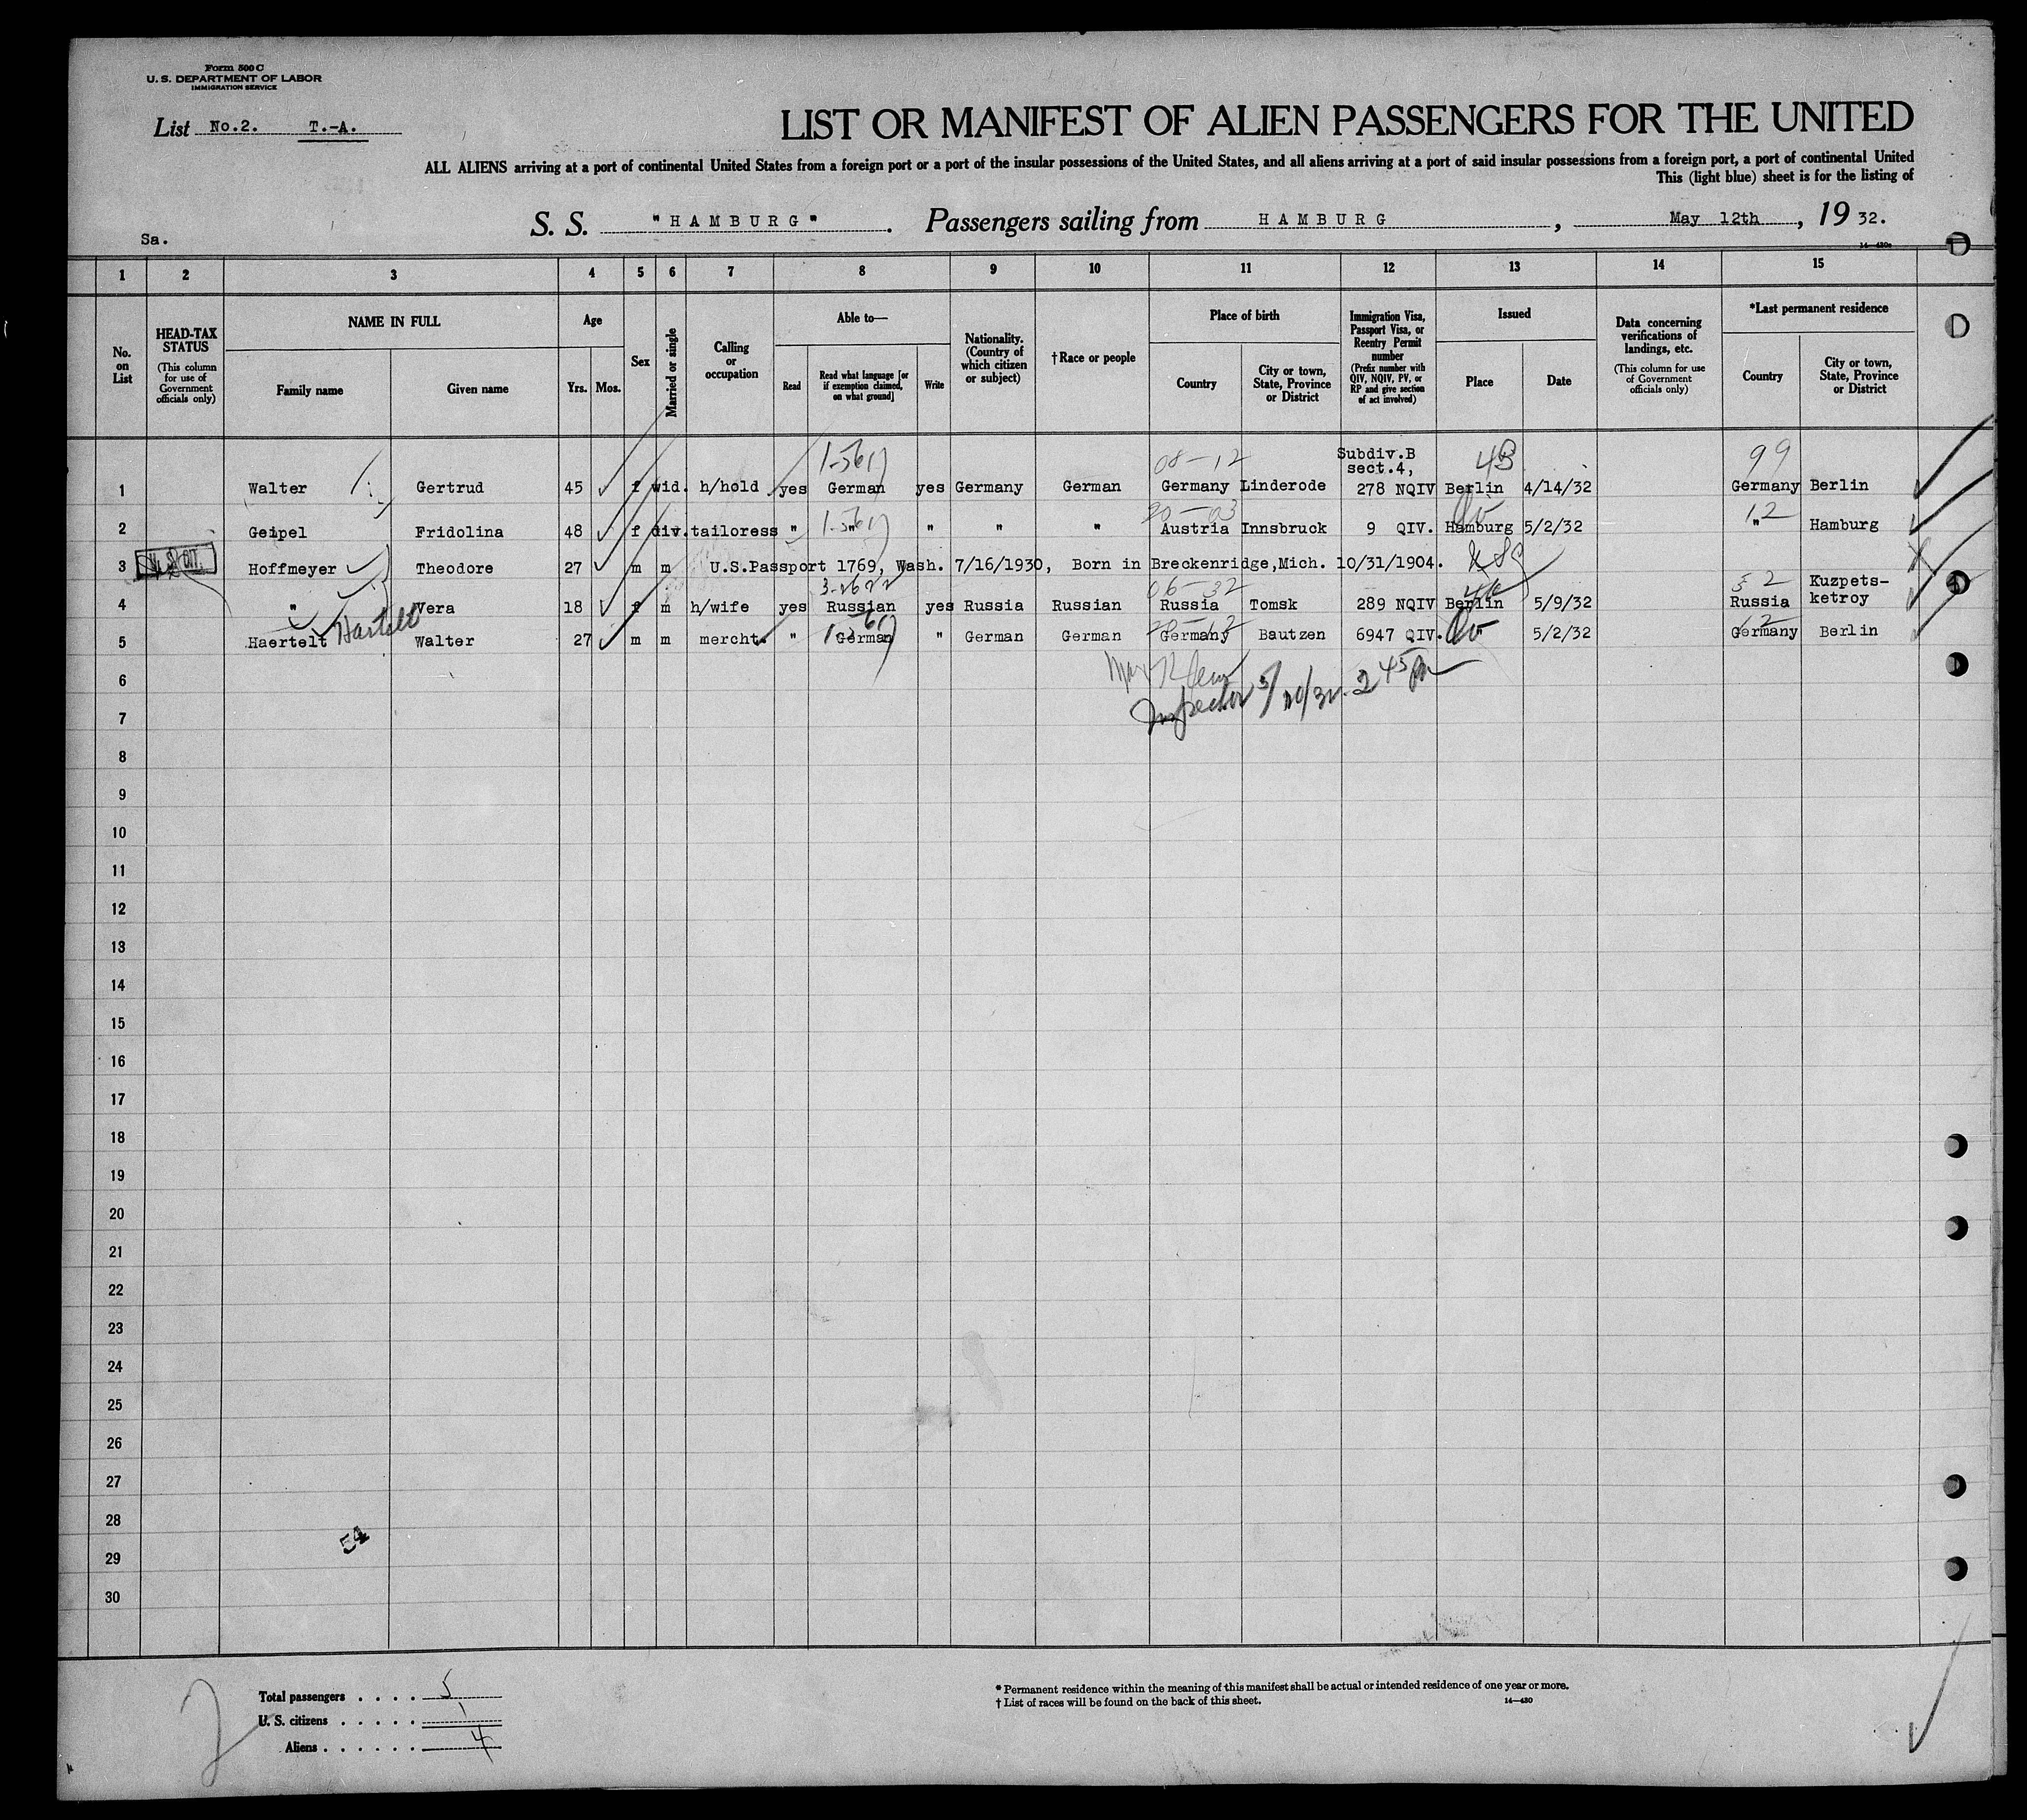 Form 500 C
U. S. DEPARTMENT OF LABOR
IMMIGRATION SERVICE
List No.2. T.-A.
LIST OR MANIFEST OF ALIEN PASSENGERS FOR THE UNITED
ALL ALIENS arriving at a port of continental United States from a foreign port or a port of the insular possessions of the United States, and all aliens arriving at a port of said insular possessions from a foreign port, a port of continental United
This (light blue) sheet is for the listing of
Sa.
S. S. "HAMBURG". Passengers sailing from HAMBURG, May 12th, 19 32.
14—430a
1 2 3 4 5 6 7 8 9 10 11 12 13 14 15
No. on List
HEAD-TAX STATUS (This column for use of Government officials only)
NAME IN FULL
Family name
Given name
Age
Yrs. Mos.
Sex
Married or single
Calling or occupation
Able to—
Read
Read what language [or if exemption claimed, on what ground]
Write
Nationality. (Country of which citizen or subject)
†Race or people
Place of birth
Country
City or town, State, Province or District
Immigration Visa, Passport Visa, or Reentry Permit number (Prefix number with QIV, NQIV, PV, or RP and give section of act involved)
Issued
Place
Date
Data concerning verifications of landings, etc. (This column for use of Government officials only)
*Last permanent residence
Country
City or town, State, Province or District
08-12 Subdiv.B sect.4, 4B 99
1 Walter Gertrud 45 f wid. h/hold yes German yes Germany German Germany Linderode 278 NQIV Berlin 4/14/32 Germany Berlin
20-03 12
2 Geipel Fridolina 48 f div. tailoress " " " " " Austria Innsbruck 9 QIV. Hamburg 5/2/32 " Hamburg
U.S. CIT.
3 Hoffmeyer Theodore 27 m m U.S.Passport 1769, Wash. 7/16/1930, Born in Breckenridge,Mich. 10/31/1904.
06-32
4 " Vera 18 f m h/wife yes Russian yes Russia Russian Russia Tomsk 289 NQIV Berlin 5/9/32 Russia Kuzpets-ketroy
5 Haertelt Hartelt Walter 27 m m mercht. " German " German German Germany Bautzen 6947 QIV. 5/2/32 Germany Berlin
6
Inspector 5/20/32. 2 45 PM
7
8
9
10
11
12
13
14
15
16
17
18
19
20
21
22
23
24
25
26
27
28
54
29
30
Total passengers . . . . 5
U. S. citizens . . . . . 1
Aliens . . . . . . 4
* Permanent residence within the meaning of this manifest shall be actual or intended residence of one year or more.
† List of races will be found on the back of this sheet. 14—430